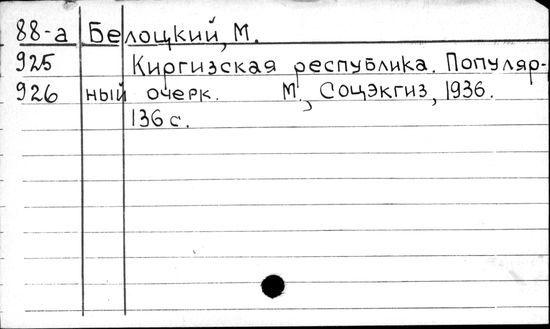 88-а Белоцкий, М.
925 Киргизская республика. Популяр-
926 ный очерк. М., Соцэкгиз, 1936.
136 с.